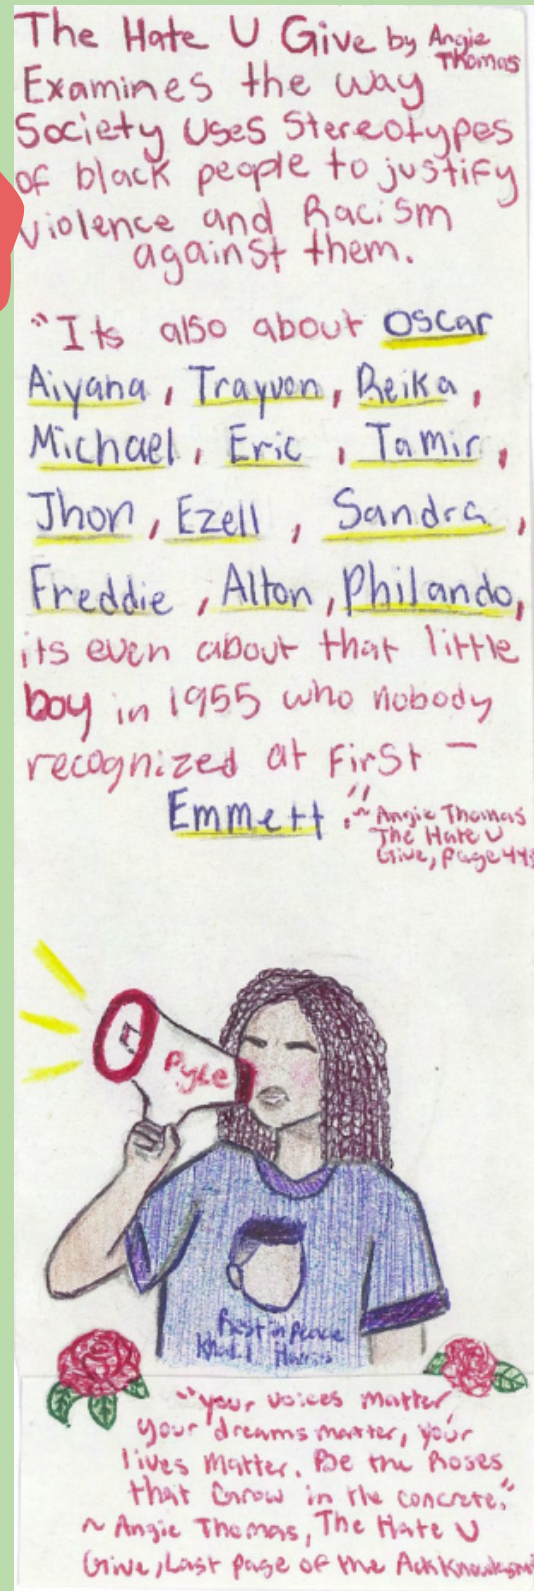 The Hate U Give by Angie
Thomas
Examines the way
Society Uses Stereotypes
of black people to justify
violence and Racism
against them.
"Its also about Oscar
Aiyana, Trayvon, Reika,
Michael, Eric, Tamir,
Jhon, Ezell, Sandra,
Freddie, Alton, Philando,
its even about that little
boy in 1955 who nobody
recognized at First –
Emmett."
~ Angie Thomas
The Hate U
Give, page 443
Rest in Peace
Khalil Harris
"your voices matter,
your dreams matter, your
lives Matter. Be the Roses
that Grow in the concrete."
~ Angie Thomas, The Hate U
Give, Last page of the